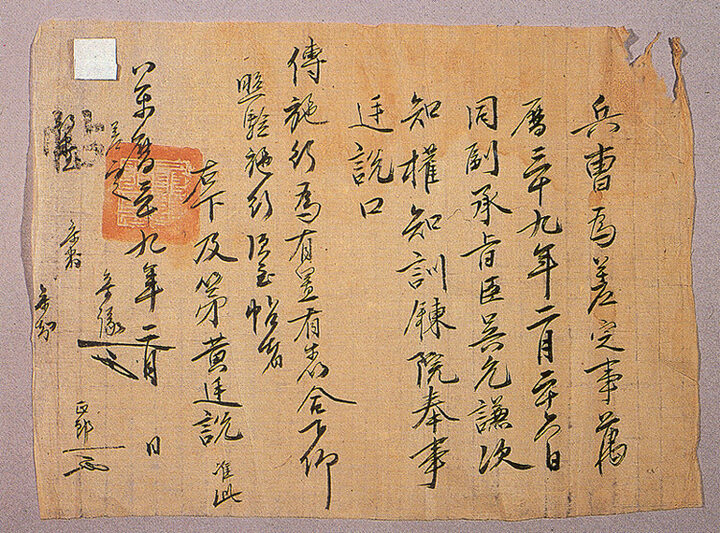 兵曹爲差定事萬
曆三十九年二月二十六日
同副承旨臣吳允謙次
知權知訓鍊院奉事
廷說口
傳施行爲有置有合下仰
照驗施行須至帖者
右下及第黃廷說 准此
萬曆三十九年二月 日
差定
正郎